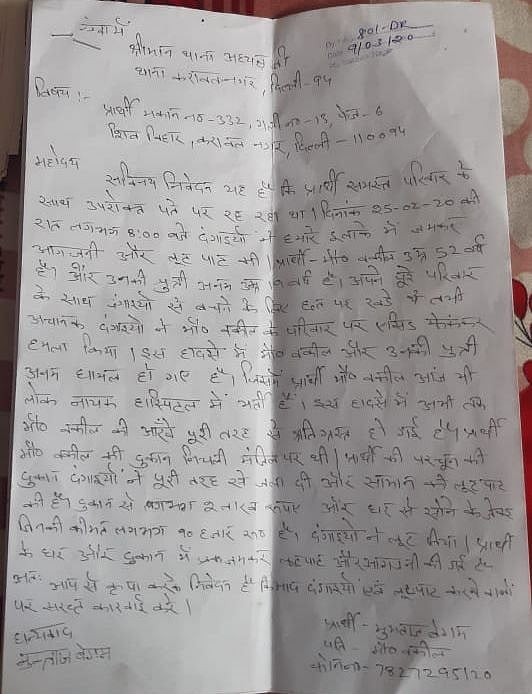 सेवा में
801-DR
9/03/20
श्रीमान थाना अध्यक्ष जी
थाना करावल नगर, दिल्ली-94
विषय :-
प्रार्थी मकान न०-332, गली न०-13, फेज-6
शिव विहार, करावल नगर, दिल्ली-110094
महोदय
सविनय निवेदन यह है कि प्रार्थी समस्त परिवार के
साथ उपरोक्त पते पर रह रहा था। दिनांक 25-02-20 की
रात लगभग 8:00 बजे दंगाइयों ने हमारे इलाके में जमकर
आगजनी और लूट पाट की। प्रार्थी - मौ० वकील उम्र 52 वर्ष
है। और उनकी पुत्री अनम उम्र १९ वर्ष है। अपने पूरे परिवार
के साथ दंगाइयो से बचने के लिए छत पर खडे थे तभी
अचानक दंगाइयो ने मौ० वकील के परिवार पर एसिड फेंककर
हमला किया। इस हादसे में मौ० वकील और उनकी पुत्री
अनम घायल हो गए है। जिसमें प्रार्थी मौ० वकील आज भी
लोक नायक हास्पिटल में भर्ती हैं। इस हादसे में अभी तक
मौ० वकील की आंखे पूरी तरह से क्षतिग्रस्त हो गई है। प्रार्थी
मौ० वकील की दुकान निचली मंजिल पर थी। प्रार्थी की परचून की
दुकान दंगाइयों ने पूरी तरह से जला दी और सामान की लूटपाट
की है। दुकान से लगभग २ लाख रूपए और घर से सोने के जेवर
जिनकी कीमत लगभग ९० हजार रू० है। दंगाइयों ने लूट लिया। प्रार्थी
के घर और दुकान में जमकर लूटपाट और आगजनी की गई है।
अतः आप से कृपा करके निवेदन है कि आप दंगाइयों एवं लूटपाट करने वालों
पर सख्त कारवाई करे।
धन्यवाद
मुमताज बेगम
प्रार्थी - मुमताज बेगम
पति - मौ० वकील
फोन न०- 7827295120